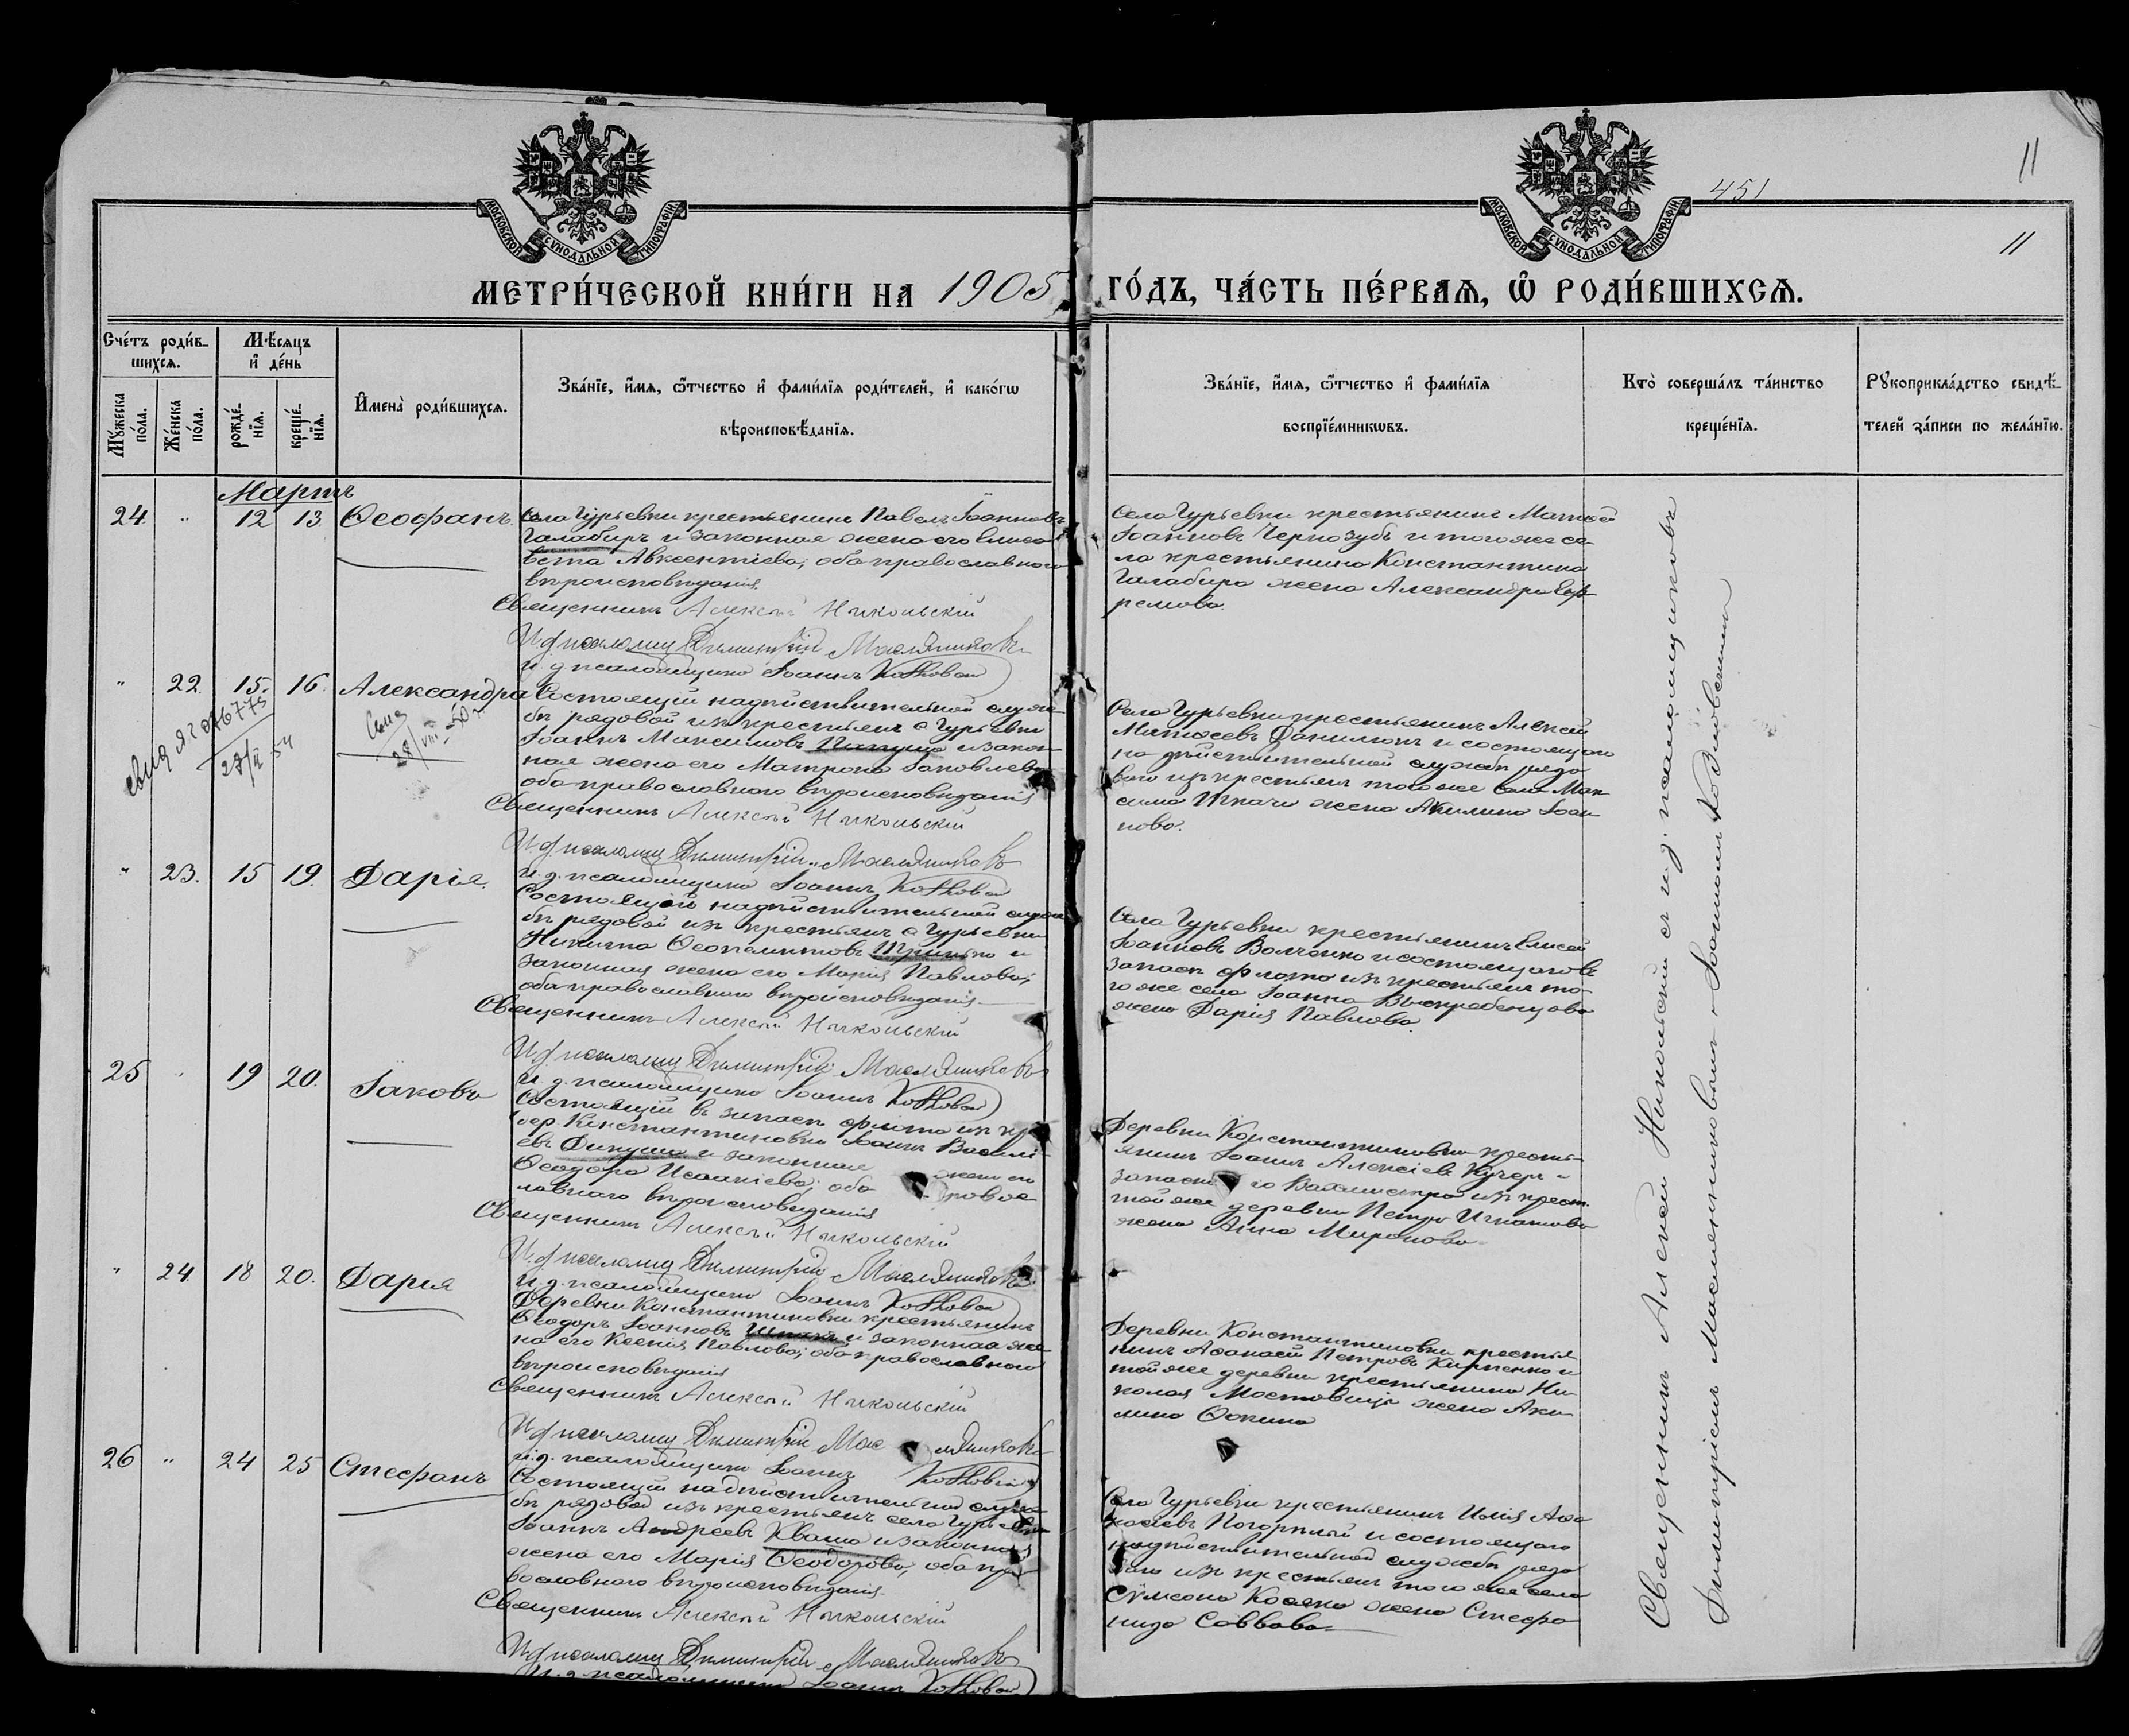 МОСКОВСКОЙ СѴНОДАЛЬНОЙ ТИПОГРАФІИ
МОСКОВСКОЙ СѴНОДАЛЬНОЙ ТИПОГРАФІИ
451
11
11
МЕТРИ́ЧЕСКОЙ КНИ́ГИ НА 1905 ГО́ДЪ, ЧА́СТЬ ПЕ́РВАѦ, Ѽ РОДИ́ВШИХСѦ.
Сче́тъ роди́в-
шихсѧ.
Мѣ́сѧцъ
и҆ де́нь
Мꙋ́жеска
по́ла.
Же́нска
по́ла.
рожде́-
нїѧ.
креще́-
нїѧ.
И҆мена̀ роди́вшихсѧ.
Зва́нїе, и҆́мѧ, ѻ҆́тчество и҆ фами́лїѧ роди́телей, и҆ како́гѡ
вѣроисповѣ́данїѧ.
Зва́нїе, и҆́мѧ, ѻ҆́тчество и҆ фами́лїѧ
воспрїе́мникѡвъ.
Кто̀ соверша́лъ та́инство
креще́нїѧ.
Рꙋкоприкла́дство свидѣ́-
телей за́писи по жела́нїю.
Мартъ
24 " 12 13 Ѳеофанъ.
Села Гурьевки крестьянинъ Павелъ Іоанновъ
Галабиръ и законная жена его Елиса
вета Авксентіева; оба православнаго
вѣроисповѣданія.
Священникъ Алексѣй Никольскій
И.д. псаломщ Димитрій Масляниковъ
и. д. псаломщика Іоаннъ
Села Гурьевки крестьянинъ Матѳей
Іоанновъ Чернозубъ и того же се-
ла крестьянина Константина
Галабира жена Александра Еф-
ремова.
" 22. 15. 16. Александра
27/II 54
Состоящій на дѣйствительной служ-
бѣ рядовой изъ крестьянъ с Гурьевки
Іоаннъ Максимовъ и закон-
ная жена его Матрона Іаковлева
оба православнаго вѣроисповѣданія
Священникъ Алексѣй Никольскій
И.д. псаломщ Димитрій Масляниковъ
и. д. псаломщика Іоаннъ
Села Гурьевки крестьянинъ Алексѣй
Матѳеевъ Данилюкъ и состоящаго
на дѣйствительной службѣ рядо
вого изъ крестьянъ того же села Мак
сима Ткачи жена Акилина Іоан
нова.
" 23. 15 19. Дарія.
Состоящій на дѣйствительной служ
бѣ рядовой изъ крестьянъ с Гурьевки
Никита Ѳеопемптовъ и
законная жена его Марія Павлова;
оба православнаго вѣроисповѣданія.
Священникъ Алексѣй Никольскій
И.д. псаломщ Димитрій Масляниковъ
и. д. псаломщика Іоаннъ
Села Гурьевки крестьянинъ Елисей
Іоанновъ Волченко и состоящаго въ
запасѣ флота изъ крестьянъ то-
го же села Іоанна
жена Дарія Павлова.
25 19 20. Іаковъ
Состоящій въ запасѣ флота изъ кр
дер Константиновки Іоаннъ Васильі-
евъ и законная жена его
Ѳеодора Исаакіева; оба правос
лавнаго вѣроисповѣданія
Священникъ Алексѣй Никольскій
И.д. псаломщ Димитрій Масляниковъ
и. д. псаломщика Іоаннъ
Деревни Константиновки кресть-
янинъ Іоаннъ Алексіевъ Кучеръ и
запасного Вахмистра изъ крест.
той же деревни Петра Игнатова
жена Анна Миронова
" 24. 18 20. Дарія
Деревни Константиновки крестьянинъ
Ѳеодоръ Іоанновъ и законная же-
на его Ксенія Павлова; оба православнаго
вѣроисповѣданія
Священникъ Алексѣй Никольскій
И.д. псаломщ Димитрій Масляниковъ
и.д. псаломщика Іоаннъ
Деревни Константиновки крестья
нинъ Аѳанасій Петровъ Карпенко и
той же деревни крестьянина Ни
колая Мостовица жена Аки
лина Ѳокина
26 " 24 25 Стефанъ
Состоящій на дѣйствительной служ
бѣ рядовой изъ крестьянъ села Гурьевки
Іоаннъ Андреевъ Кваша и законная
жена его Марія Ѳеодорова, оба пра
вославнаго вѣроисповѣданія.
Священникъ Алексѣй Никольскій
И.д. псаломщ Димитрій Масляниковъ
И. д. псаломщика Іоаннъ
Села Гурьевки крестьянинъ Илія Аѳа
насіевъ Погорѣлый и состоящаго
на дѣйствительной службѣ рядо
вого изъ крестьянъ того же села
Сѵмеона Косяка жена Стефа
нида Саввова
Священникъ Алексѣй Никольскій съ и. д. псаломщиковъ
Димитріемъ Маслениковымъ и Іоанномъ